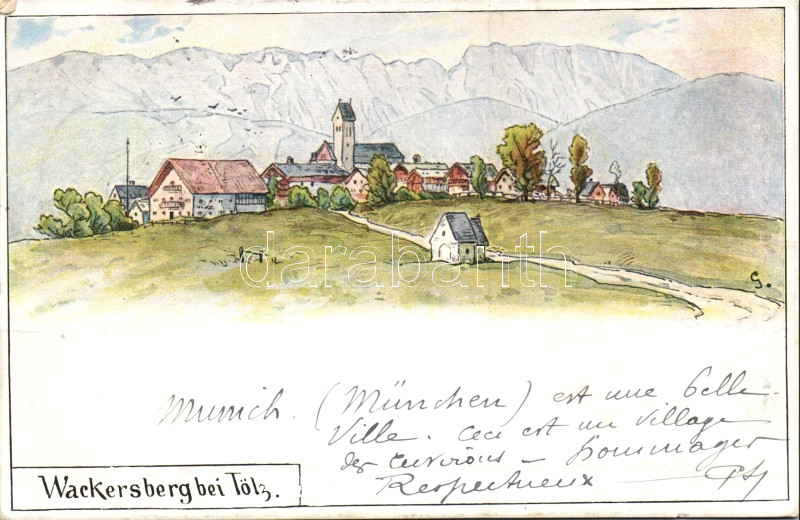 G.
darabanth
Munich. (München) est une belle
Ville. Ceci est un village
des Environs – hommages
Respectueux
Wackersberg bei Tölz.